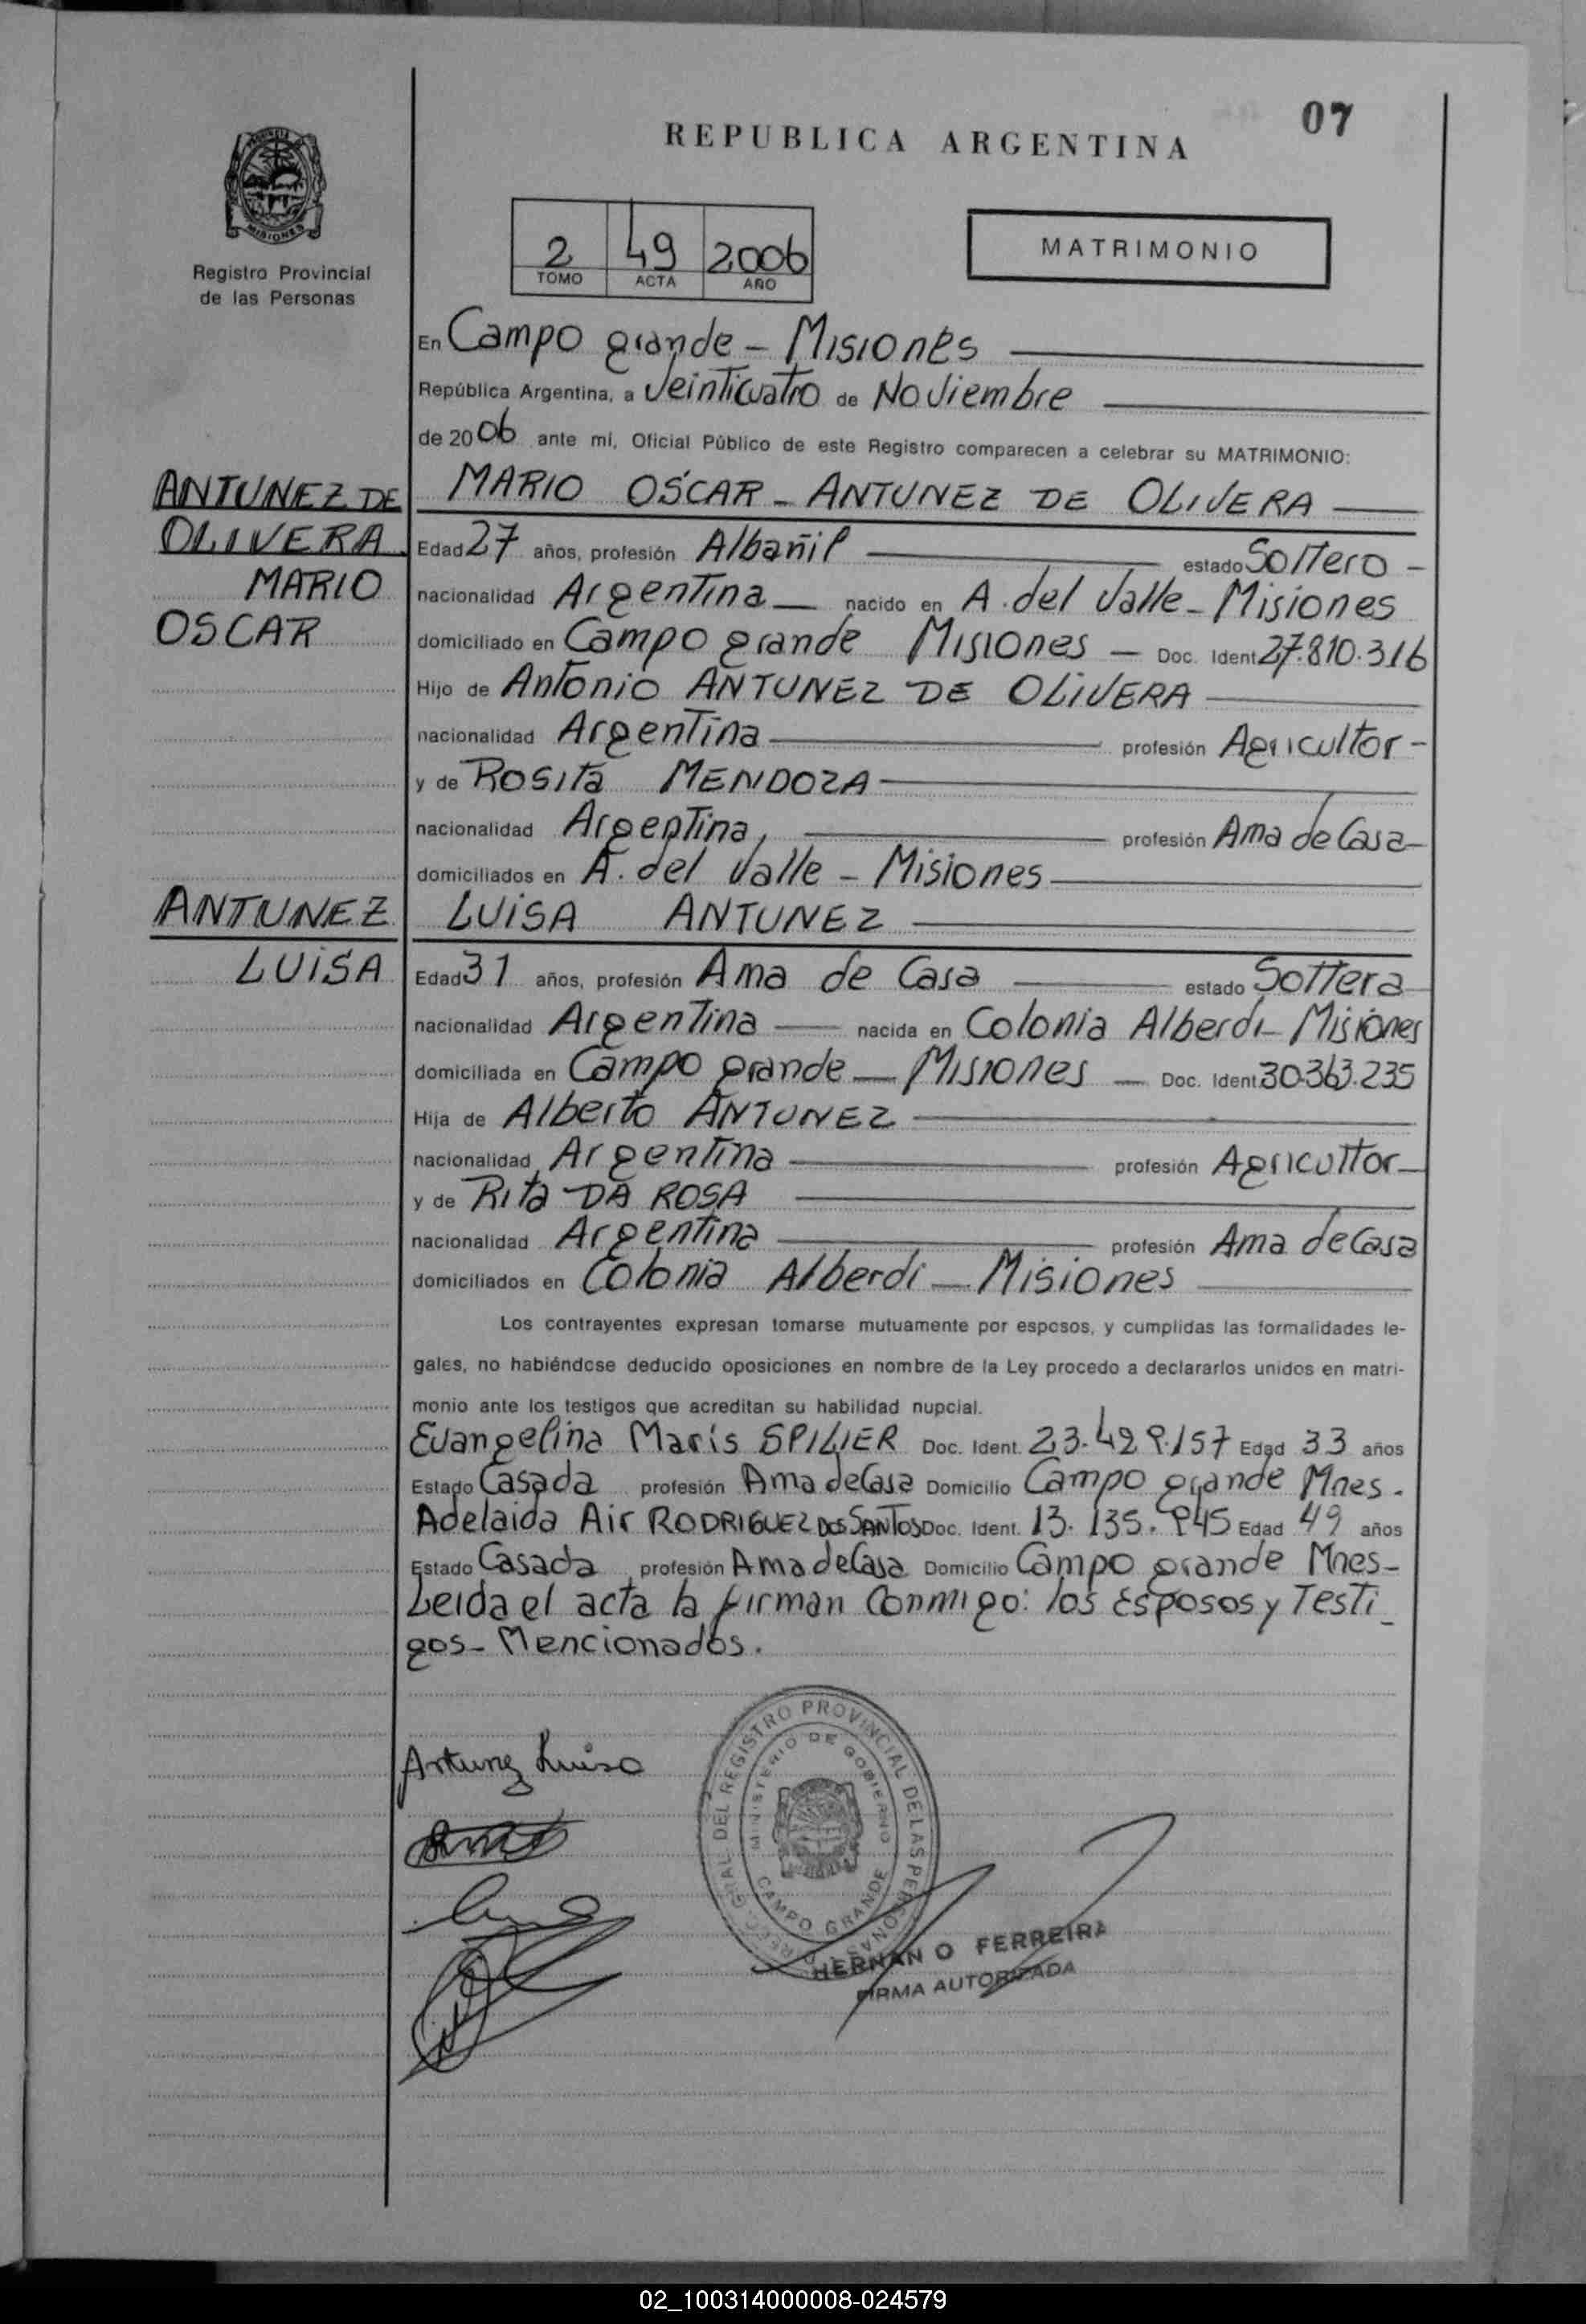 07
REPUBLICA ARGENTINA
MISIONES
Registro Provincial
de las Personas
2 49 2006
TOMO ACTA AÑO
MATRIMONIO
En Campo grande - Misiones
República Argentina, a Veinticuatro de Noviembre
de 2006 ante mí, Oficial Público de este Registro comparecen a celebrar su MATRIMONIO:
ANTUNEZ DE
OLIVERA
MARIO
OSCAR
MARIO OSCAR - ANTUNEZ DE OLIVERA
Edad 27 años, profesión Albañil estado Soltero -
nacionalidad Argentina nacido en A. del Valle - Misiones
domiciliado en Campo grande Misiones - Doc. Ident. 27.810.316
Hijo de Antonio ANTUNEZ DE OLIVERA
nacionalidad Argentina profesión Agricultor -
y de Rosita MENDOZA
nacionalidad Argentina, profesión Ama de Casa -
domiciliados en A. del Valle - Misiones
ANTUNEZ
LUISA
LUISA ANTUNEZ
Edad 31 años, profesión Ama de Casa estado Soltera
nacionalidad Argentina nacida en Colonia Alberdi - Misiones
domiciliada en Campo grande - Misiones - Doc. Ident. 30.363.235
Hija de Alberto ANTUNEZ
nacionalidad Argentina profesión Agricultor
y de Rita DA ROSA
nacionalidad Argentina profesión Ama de Casa
domiciliados en Colonia Alberdi - Misiones
Los contrayentes expresan tomarse mutuamente por esposos, y cumplidas las formalidades le-
gales, no habiéndose deducido oposiciones en nombre de la Ley procedo a declararlos unidos en matri-
monio ante los testigos que acreditan su habilidad nupcial.
Evangelina Maris SPILIER Doc. Ident. 23.429.157 Edad 33 años
Estado Casada profesión Ama de Casa Domicilio Campo grande Mnes.
Adelaida Air RODRIGUEZ DOS SANTOS Doc. Ident. 13.135.945 Edad 49 años
Estado Casada profesión Ama de Casa Domicilio Campo grande Mnes -
Leida el acta la firman Conmigo: los Esposos y Testi-
gos - Mencionados.
Antunez Luisa
DIREC. GRAL. DEL REGISTRO PROVINCIAL DE LAS PERSONAS
MINISTERIO DE GOBIERNO
CAMPO GRANDE
HERNAN O FERREIRA
FIRMA AUTORIZADA
02_100314000008-024579